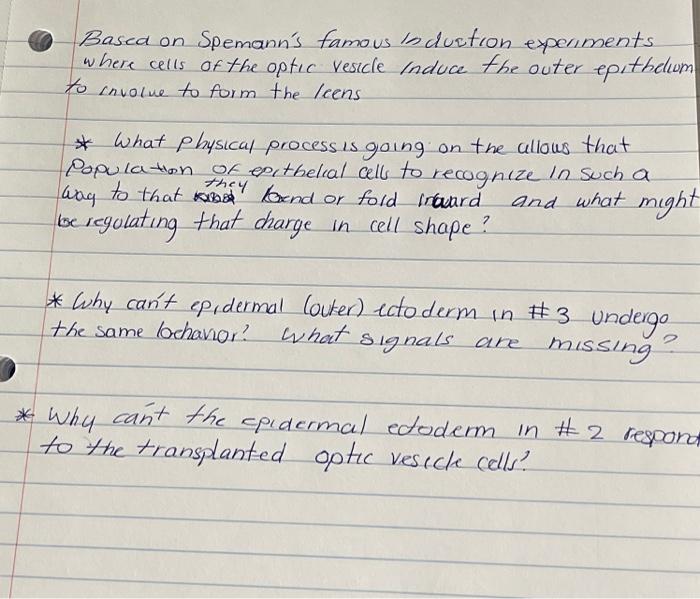 Based on Spemann's famous Induction experiments
where cells of the optic vesicle induce the outer epithelium
to involue to form the leens
* What physical process is going on the allows that
Population of epithelial cells to recognize in such a
way to that they bend or fold inward and what might
be regulating that charge in cell shape?
* Why can't epidermal (outer) ectoderm in #3 undergo
the same behavior? What signals are missing?
* Why can't the epidermal ectoderm in #2 respond
to the transplanted optic vesicle cells?